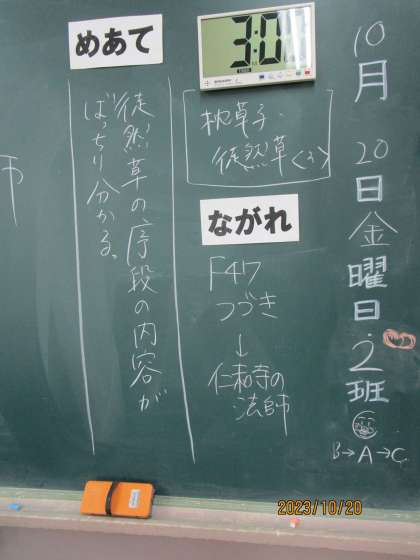 10月20日金曜日・2班
B→A→C
枕草子・
徒然草〈3〉
ながれ
F47
つづき
↓
仁和寺の
法師
めあて
徒然草の序段の内容が
ばっちり分かる。
師
2023/10/20